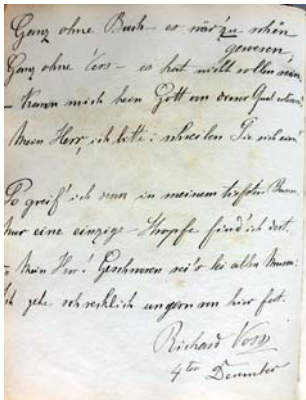 Ganz ohne Buch – es wär' zu schön
gewesen
Ganz ohne Vers – es hat nicht sollen sein.
– Kann mich kein Gott von dieser Qual
Mein Herr, ich bitte: schreiben Sie sich ein.
So greif' ich denn in meinem tiefsten Busen
nur eine einzige Strophe find' ich dort.
– Mein Herr! Geschworen sei's bei allen Musen:
ich gehe schrecklich ungern von hier fort.
Richard Voss
4ter Dezember